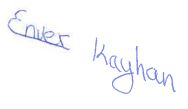 Enver Kayhan